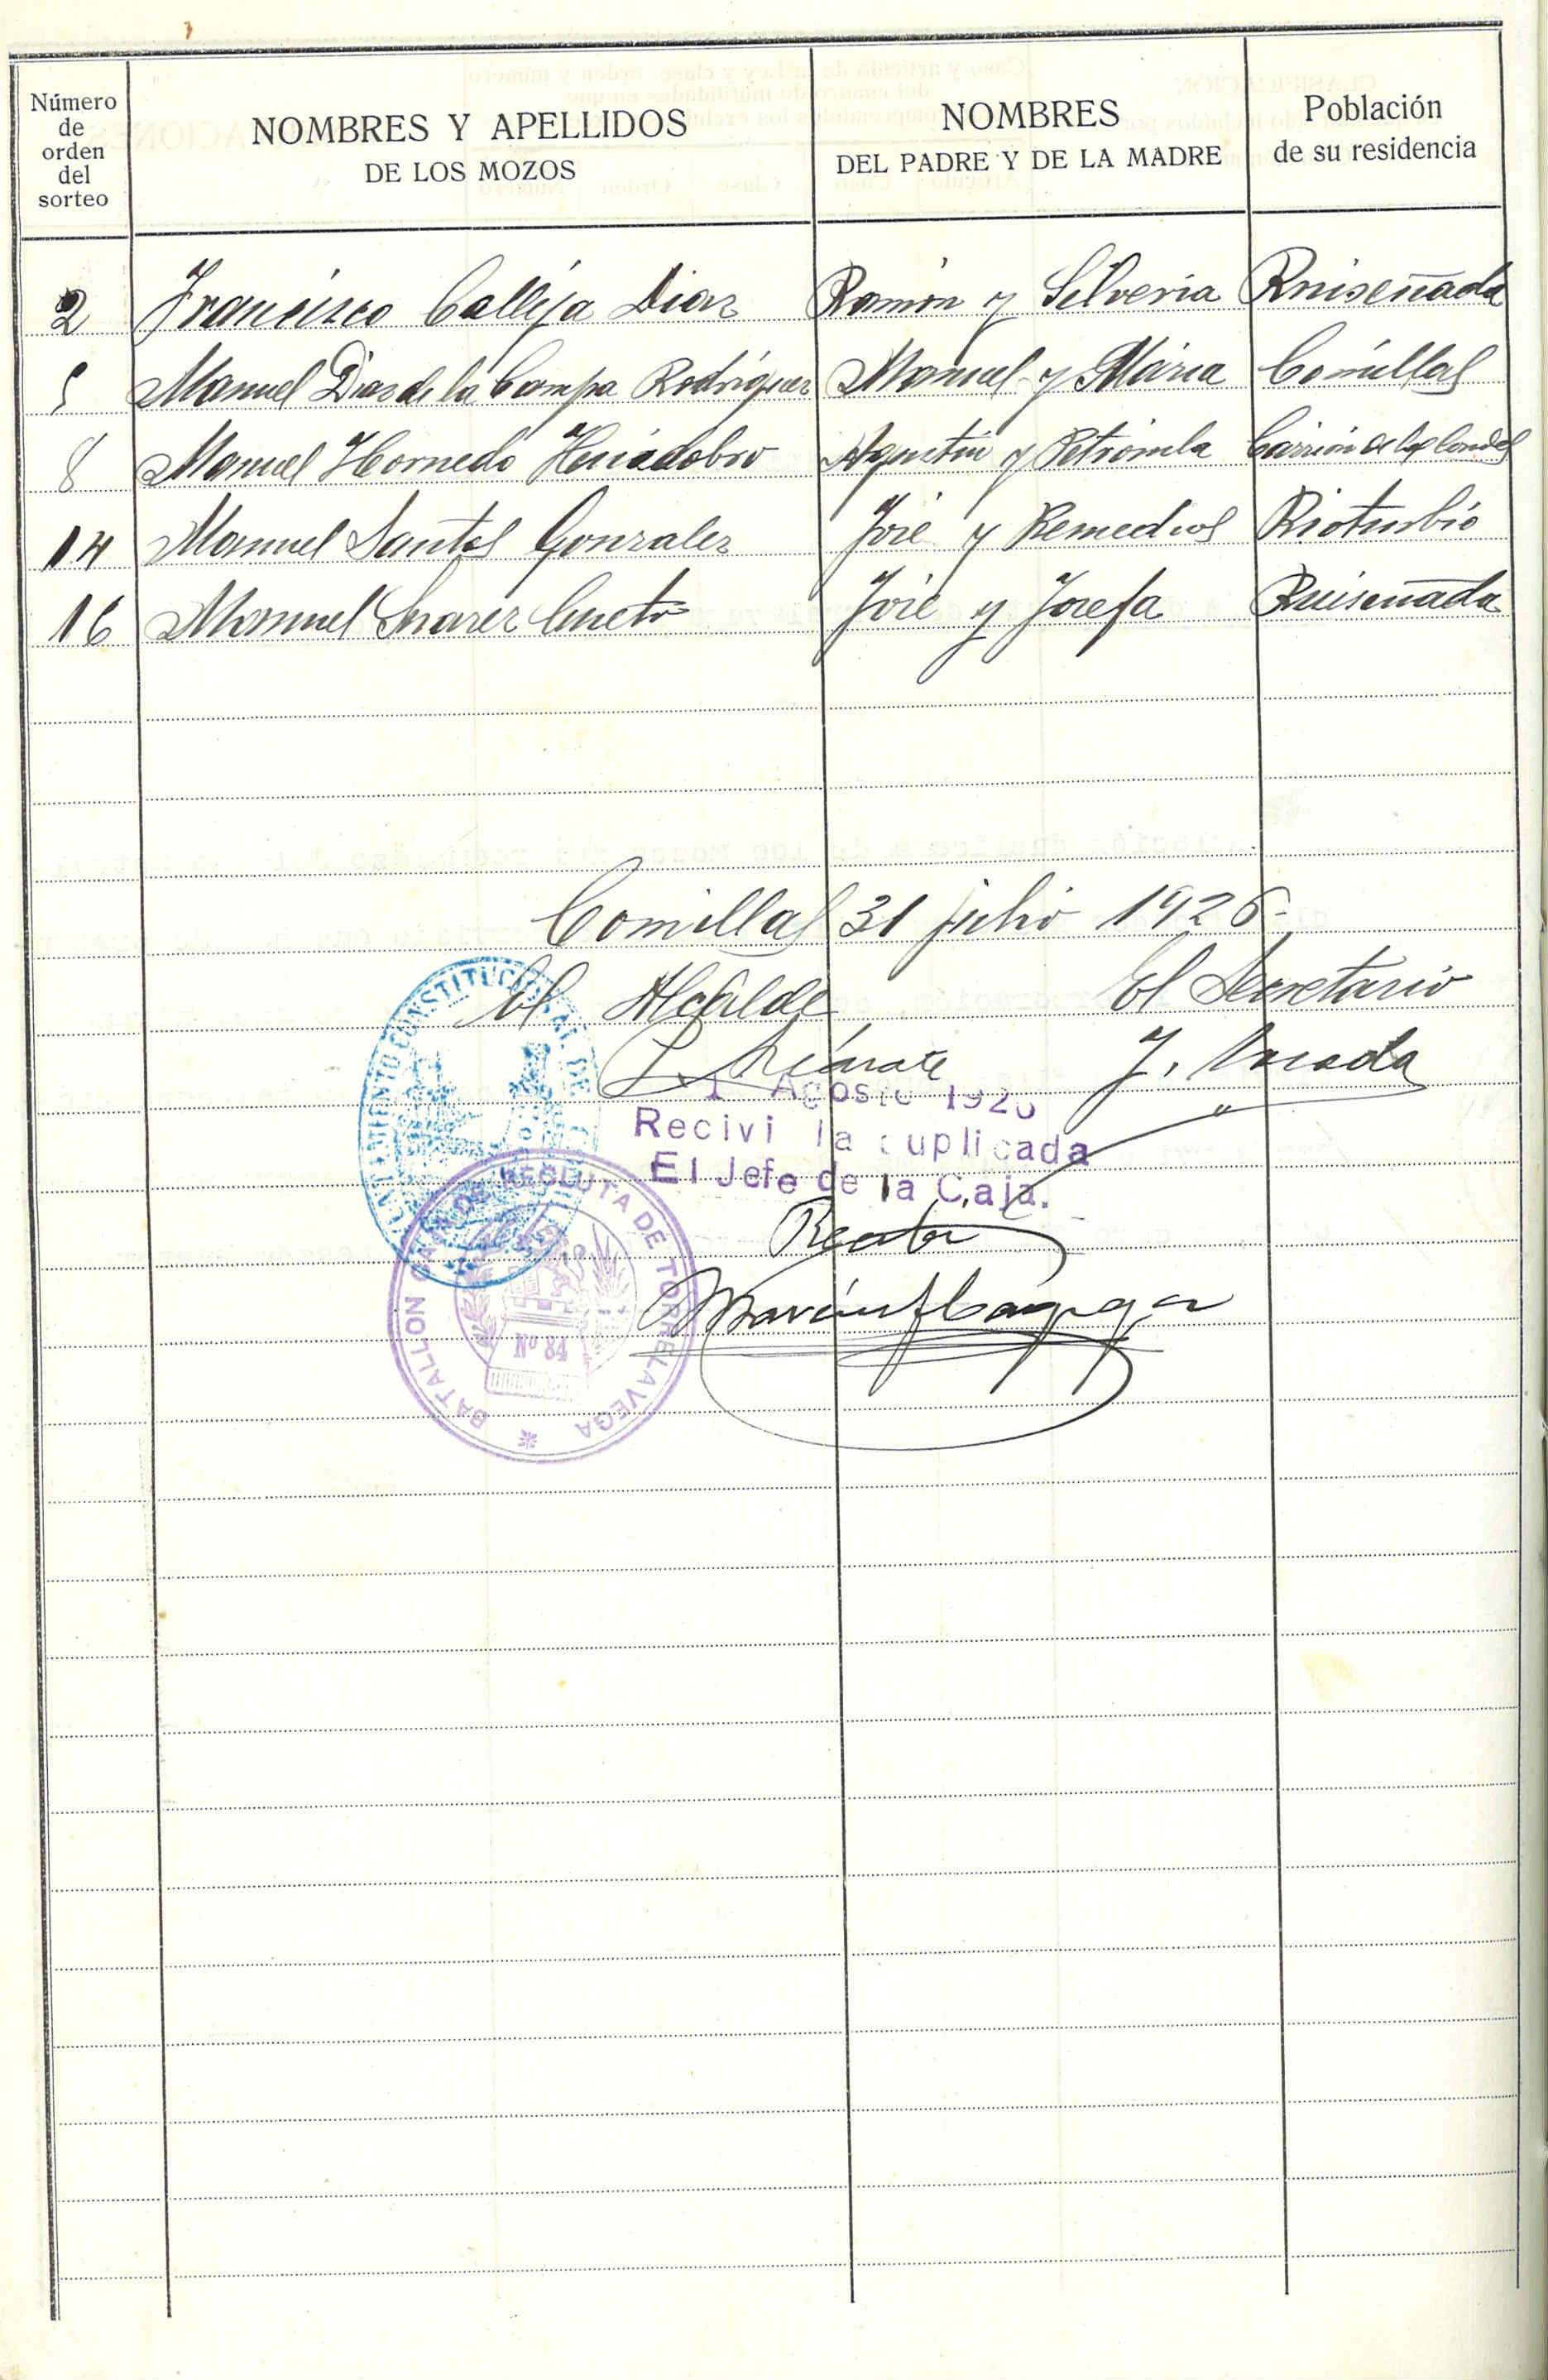 Número de orden del sorteo
NOMBRES Y APELLIDOS DE LOS MOZOS
NOMBRES DEL PADRE Y DE LA MADRE
Población de su residencia
2 Francisco Calleja Diaz Ramón y Silveria Ruiseñada
5 Manuel Diaz de la Campa Rodriguez Manuel y Maria Comillas
8 Manuel Hornedo Huidobro Agustin y Petronila Carrión de los Condes
14 Manuel Santos Gonzalez José y Remedios Rioturbio
16 Manuel Suarez Cueto José y Josefa Ruiseñada
Comillas 31 julio 1926.
El Alcalde El Secretario
AYUNTAMIENTO CONSTITUCIONAL DE
1 Agosto 1926
Recivi la duplicada
El Jefe de la Caja.
BATALLON CAJA DE RECLUTA DE TORRELAVEGA
Nº 84